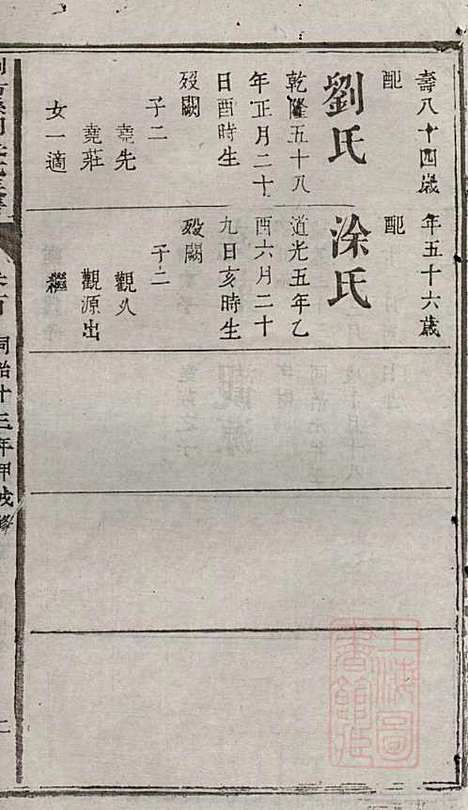 壽八十四歲
配
劉氏
乾隆五十八
年正月二十
日酉時生
歿闕
子二
堯先
堯莊
女一適
年五十六歲
配
涂氏
道光五年乙
酉六月二十
九日亥時生
歿闕
子二
觀源出
繼
同治十三年甲戌修
上海圖書館藏